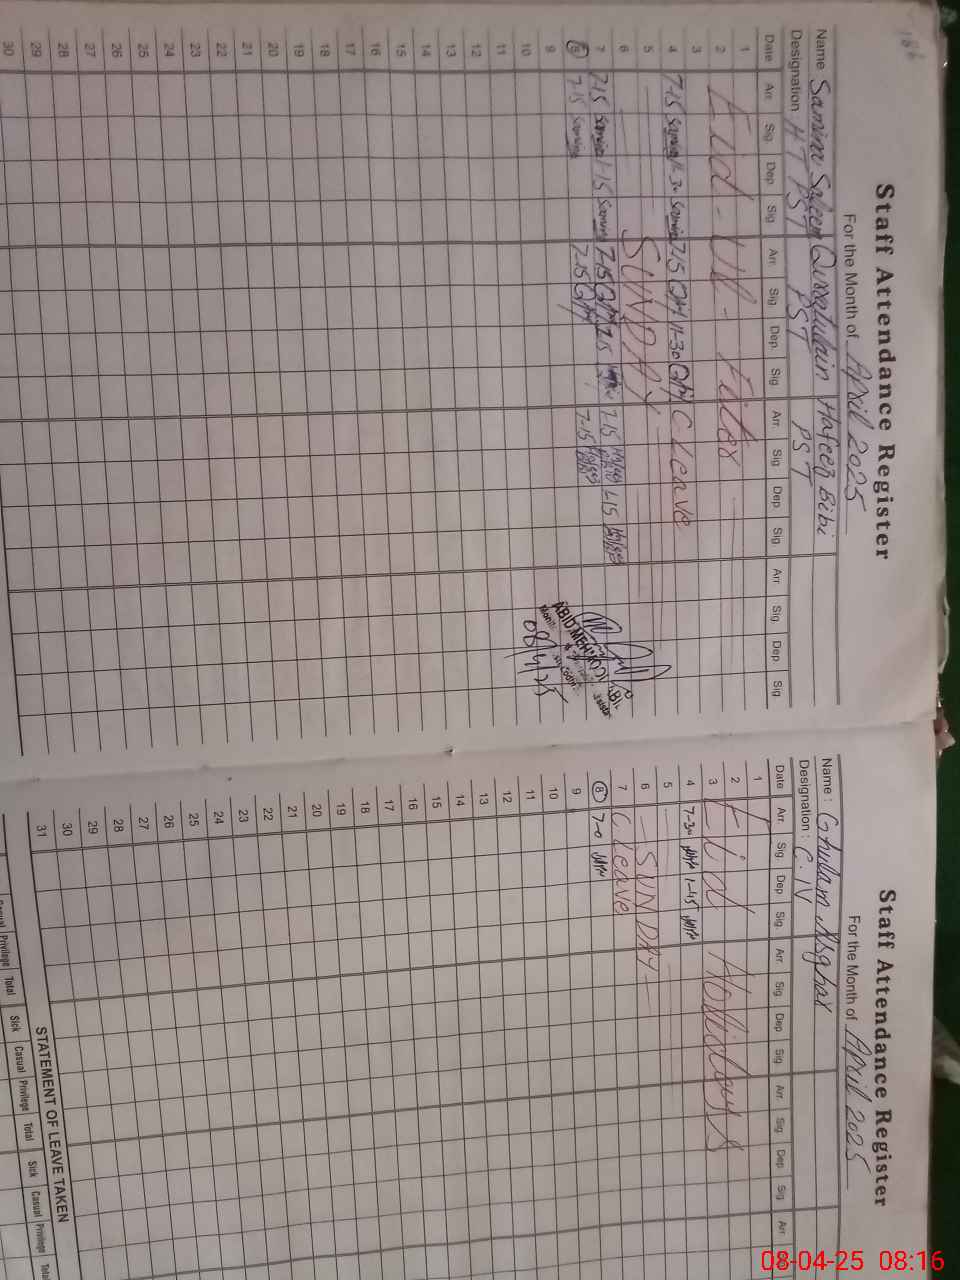 186
Staff Attendance Register
For the Month of April 2025
Name Samina Saleem Qurratulain Hafeez Bibi
Designation HT PST PST PST
Date Arr. Sig. Dep. Sig. Arr. Sig. Dep. Sig. Arr. Sig. Dep. Sig. Arr. Sig. Dep. Sig.
1
2 Eid-Ul-Fiter
3
4 7-15 Samina 11-30 Samina 7-15 11-30 C Leave
5
6 SUNDAY
7 7-15 Samina 1-15 Samina 7-15 1-15 7-15 1-15
8 7-15 Samina 7-15 7-15
9
10
11
12
13
14
15
16
17
18
19
20
21
22
23
24
25
26
27
28
29
30
ABID MEHMOOD
08/4/25
Staff Attendance Register
For the Month of April 2025
Name : Ghulam Asghar
Designation : C.IV
Date Arr. Sig. Dep Sig. Arr. Sig. Dep Sig. Arr. Sig. Dep Sig. Arr.
1
2 Eid Holidays
3
4 7-30 1-45
5
6 SUNDAY
7 C Leave
8 7-0
9
10
11
12
13
14
15
16
17
18
19
20
21
22
23
24
25
26
27
28
29
30
31
STATEMENT OF LEAVE TAKEN
Casual Privilege Total Sick Casual Privilege Total Sick Casual Privilege Total
08-04-25 08:16